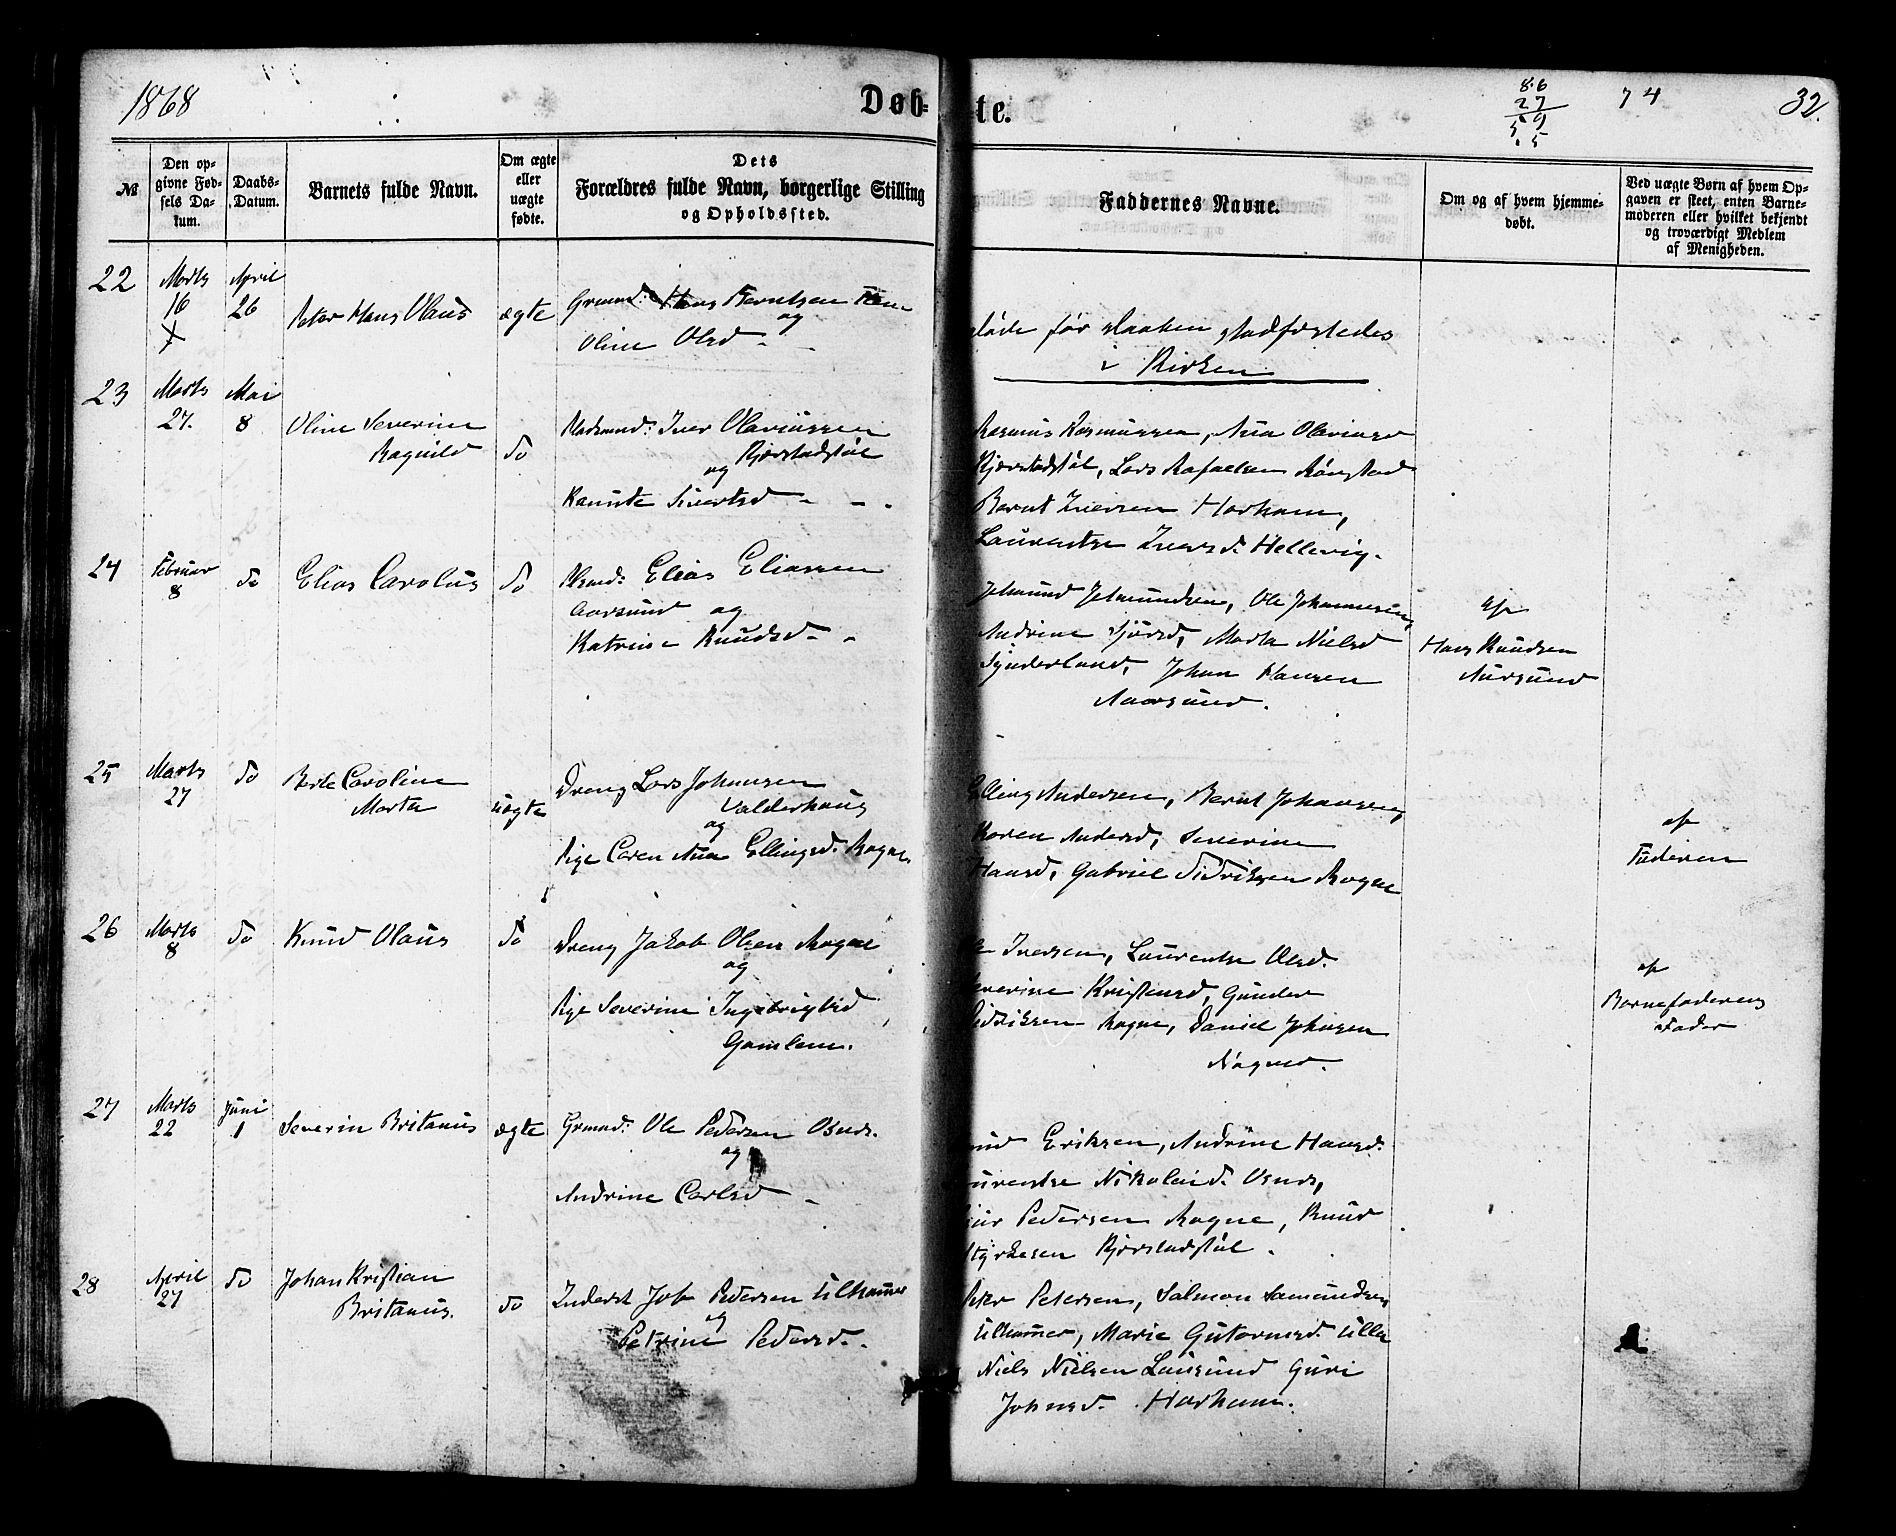 1868
Døb-
te.
86
27
59
.5
74
32.
№
Den op-
givne Fød-
sels Da-
tum.
Daabs-
Datum.
Barnets fulde Navn.
Om ægte
eller
uægte
fødte.
Dets
Forældres fulde Navn, borgerlige Stilling
og Opholdssted.
Faddernes Navne.
Om og af hvem hjemme-
døbt.
Ved uægte Børn af hvem Op-
gaven er skeet, enten Barne-
moderen eller hvilket bekjendt
og troværdigt Medlem
af Menigheden.
22
Marts
16
April
26
Peter Hans Olaus
ægte
Grmnd: Hans Berntsen
og
Oline Olsd -
døde før Daaben stadfæstedes
i Kirken
23
Marts
27.
Mai
8
Oline Severine
Ragnild
do
Pladsmd: Iver Olaviussen
Kjærstadstøl
og
Sivertsd - - -
Rasmus Rasmussen, Ana Olavius
Kjærstadstøl, Lars Rafaelsen Rønstad
Bernt Iversen Harham,
Laurentse Iversd. Hellevig.
24
Februar
8
do
Elias Carolus
do
Elias Eliassen
Aarsund og
Katrine Knudsd - -
Jetmund Jetmundsen, Ole Johannesen,
Andrine Sjursd, Marta Nielsd
Synderland, Johan Hansen
Aarsund.
af
Hans Knudsen
Aarsund
25
Marts
27
do
Berte Caroline
Marta
uægte
Dreng Lars Johansen
Valderhaug
og
Pige Caren Ana Ellingsd. Rogne
Elling Andersen, Bernt Johansen,
Karen Andersd, Severine
Hansd, Gabriel Didriksen Rogne
af
Faderen
26
Marts
8
do
Knud Olaus
do
Dreng Jakob Olsen Rogne
og
Pige Severine Ingebrigtsd
Gamlem.
Iversen, Laurentse Olsd.
Severine Kristensd, Gunder
Didriksen Rogne, Daniel Johnsen
Rogne.
af
Barnefaderens
Fader
27
Marts
22
Juni
1
Severin Britanus
ægte
Grmnd: Ole Pedersen Osnes.
og
Andrine Carlsd -
Knud Eriksen, Andrine Hansd.
Laurentse Nikolaid. Osnes,
Pedersen Rogne, Knud
Styrkesen Kjærstadstøl.
28
April
27
do
Johan Kristian
Britanus.
do
Inderst Job Pedersen Ulhammer
og
Petrine Pedersd. -
Peter Petersen, Salmon Samundsen
Ulhammer, Marie Gutormsd. Ulla
Niels Nielsen Lausund Guri
Johnsd. Harham.